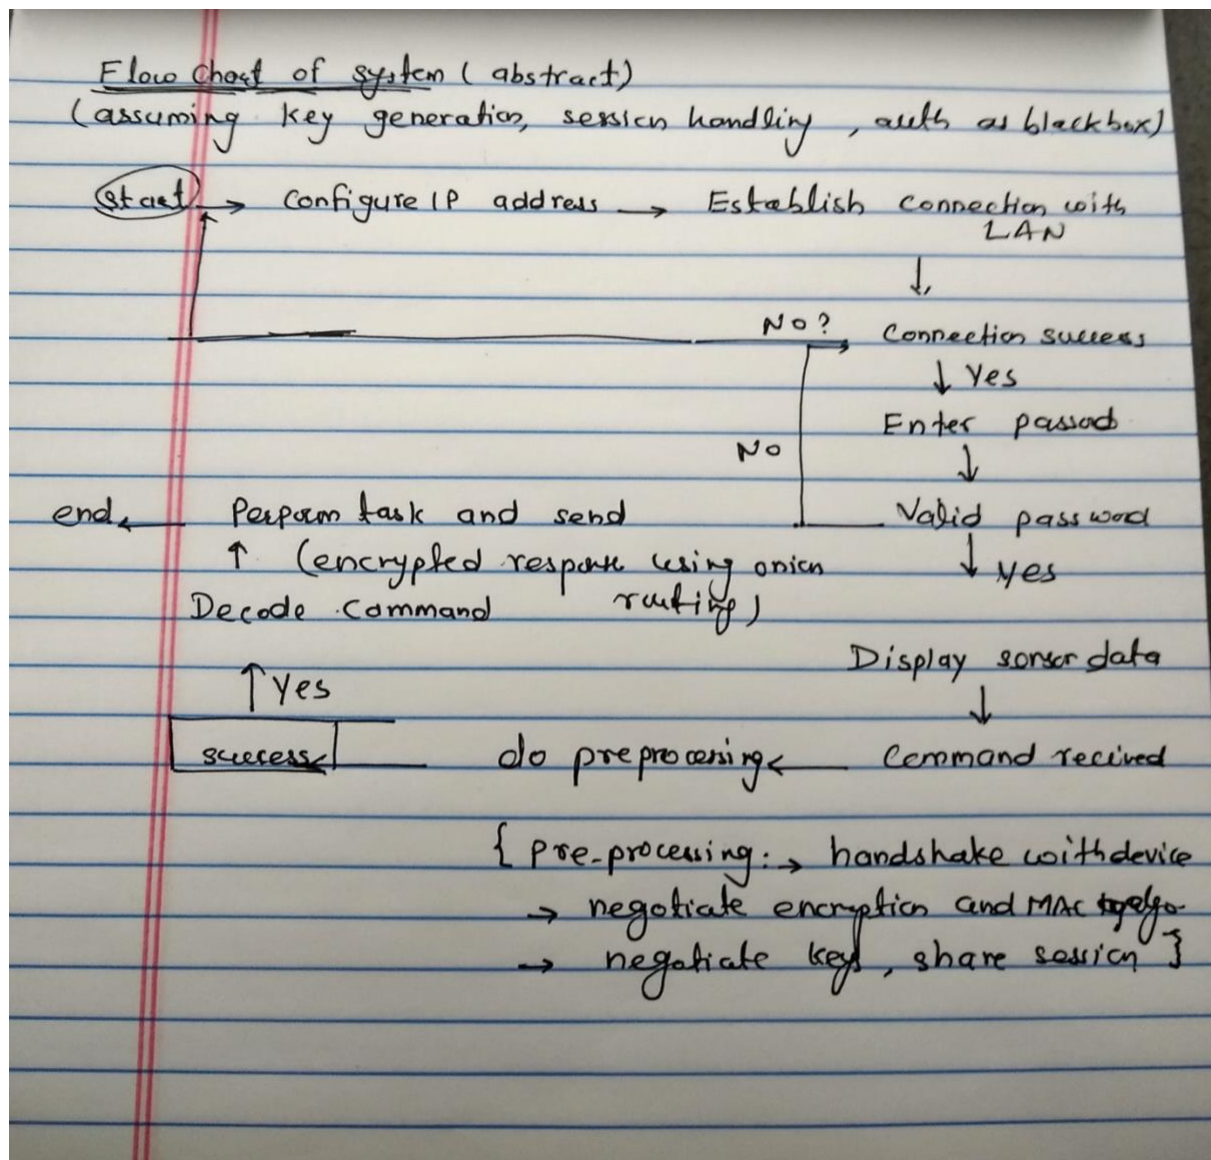 Flow Chart of system ( abstract)
(assuming key generation, session handling, auth as blackbox)
start → Configure IP address → Establish connection with
LAN
↓
No? → Connection success
↓ Yes
Enter
↓
No
end ← Perform task and send
Valid password
↑ (encrypted response using onion
↓ yes
Decode command routing)
Display sensor data
↑ Yes
↓
success ← do preprocessing ← Command recived
{ pre-processing: → handshake with device
→ negotiate encryption and MAC
→ negotiate key, share session }